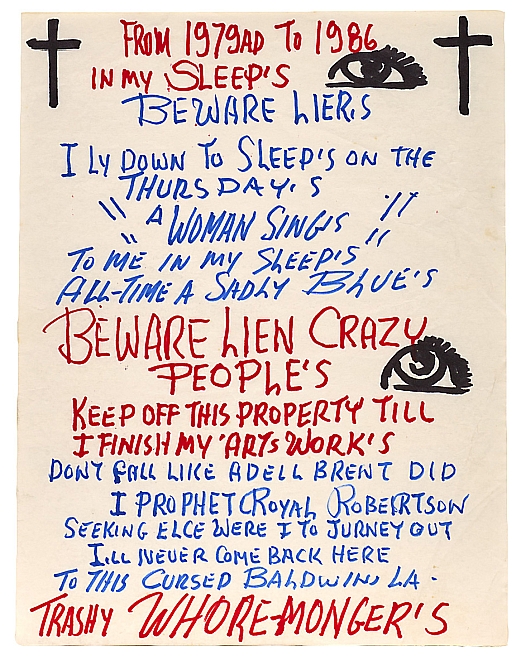 FROM 1979AD TO 1986
IN MY SLEEP'S
BEWARE LIER,S
I LY DOWN TO SLEEP'S ON THE
THURSDAY'S
"A WOMAN SING,S"
TO ME IN MY SLEEP'S
ALL-TIME A SADLY BLUE'S
BEWARE LIEN CRAZY
PEOPLE'S
KEEP OFF THIS PROPERTY TILL
I FINISH MY 'ARTS WORK'S
DONT FALL LIKE ADELL BRENT DID
I PROPHET ROYAL ROBERTSON
SEEKING ELCE WERE I TO JURNEY OUT
I.LL NEVER COME BACK HERE
TO THIS CURSED BALDWIN, LA.
TRASHY WHORE-MONGER'S